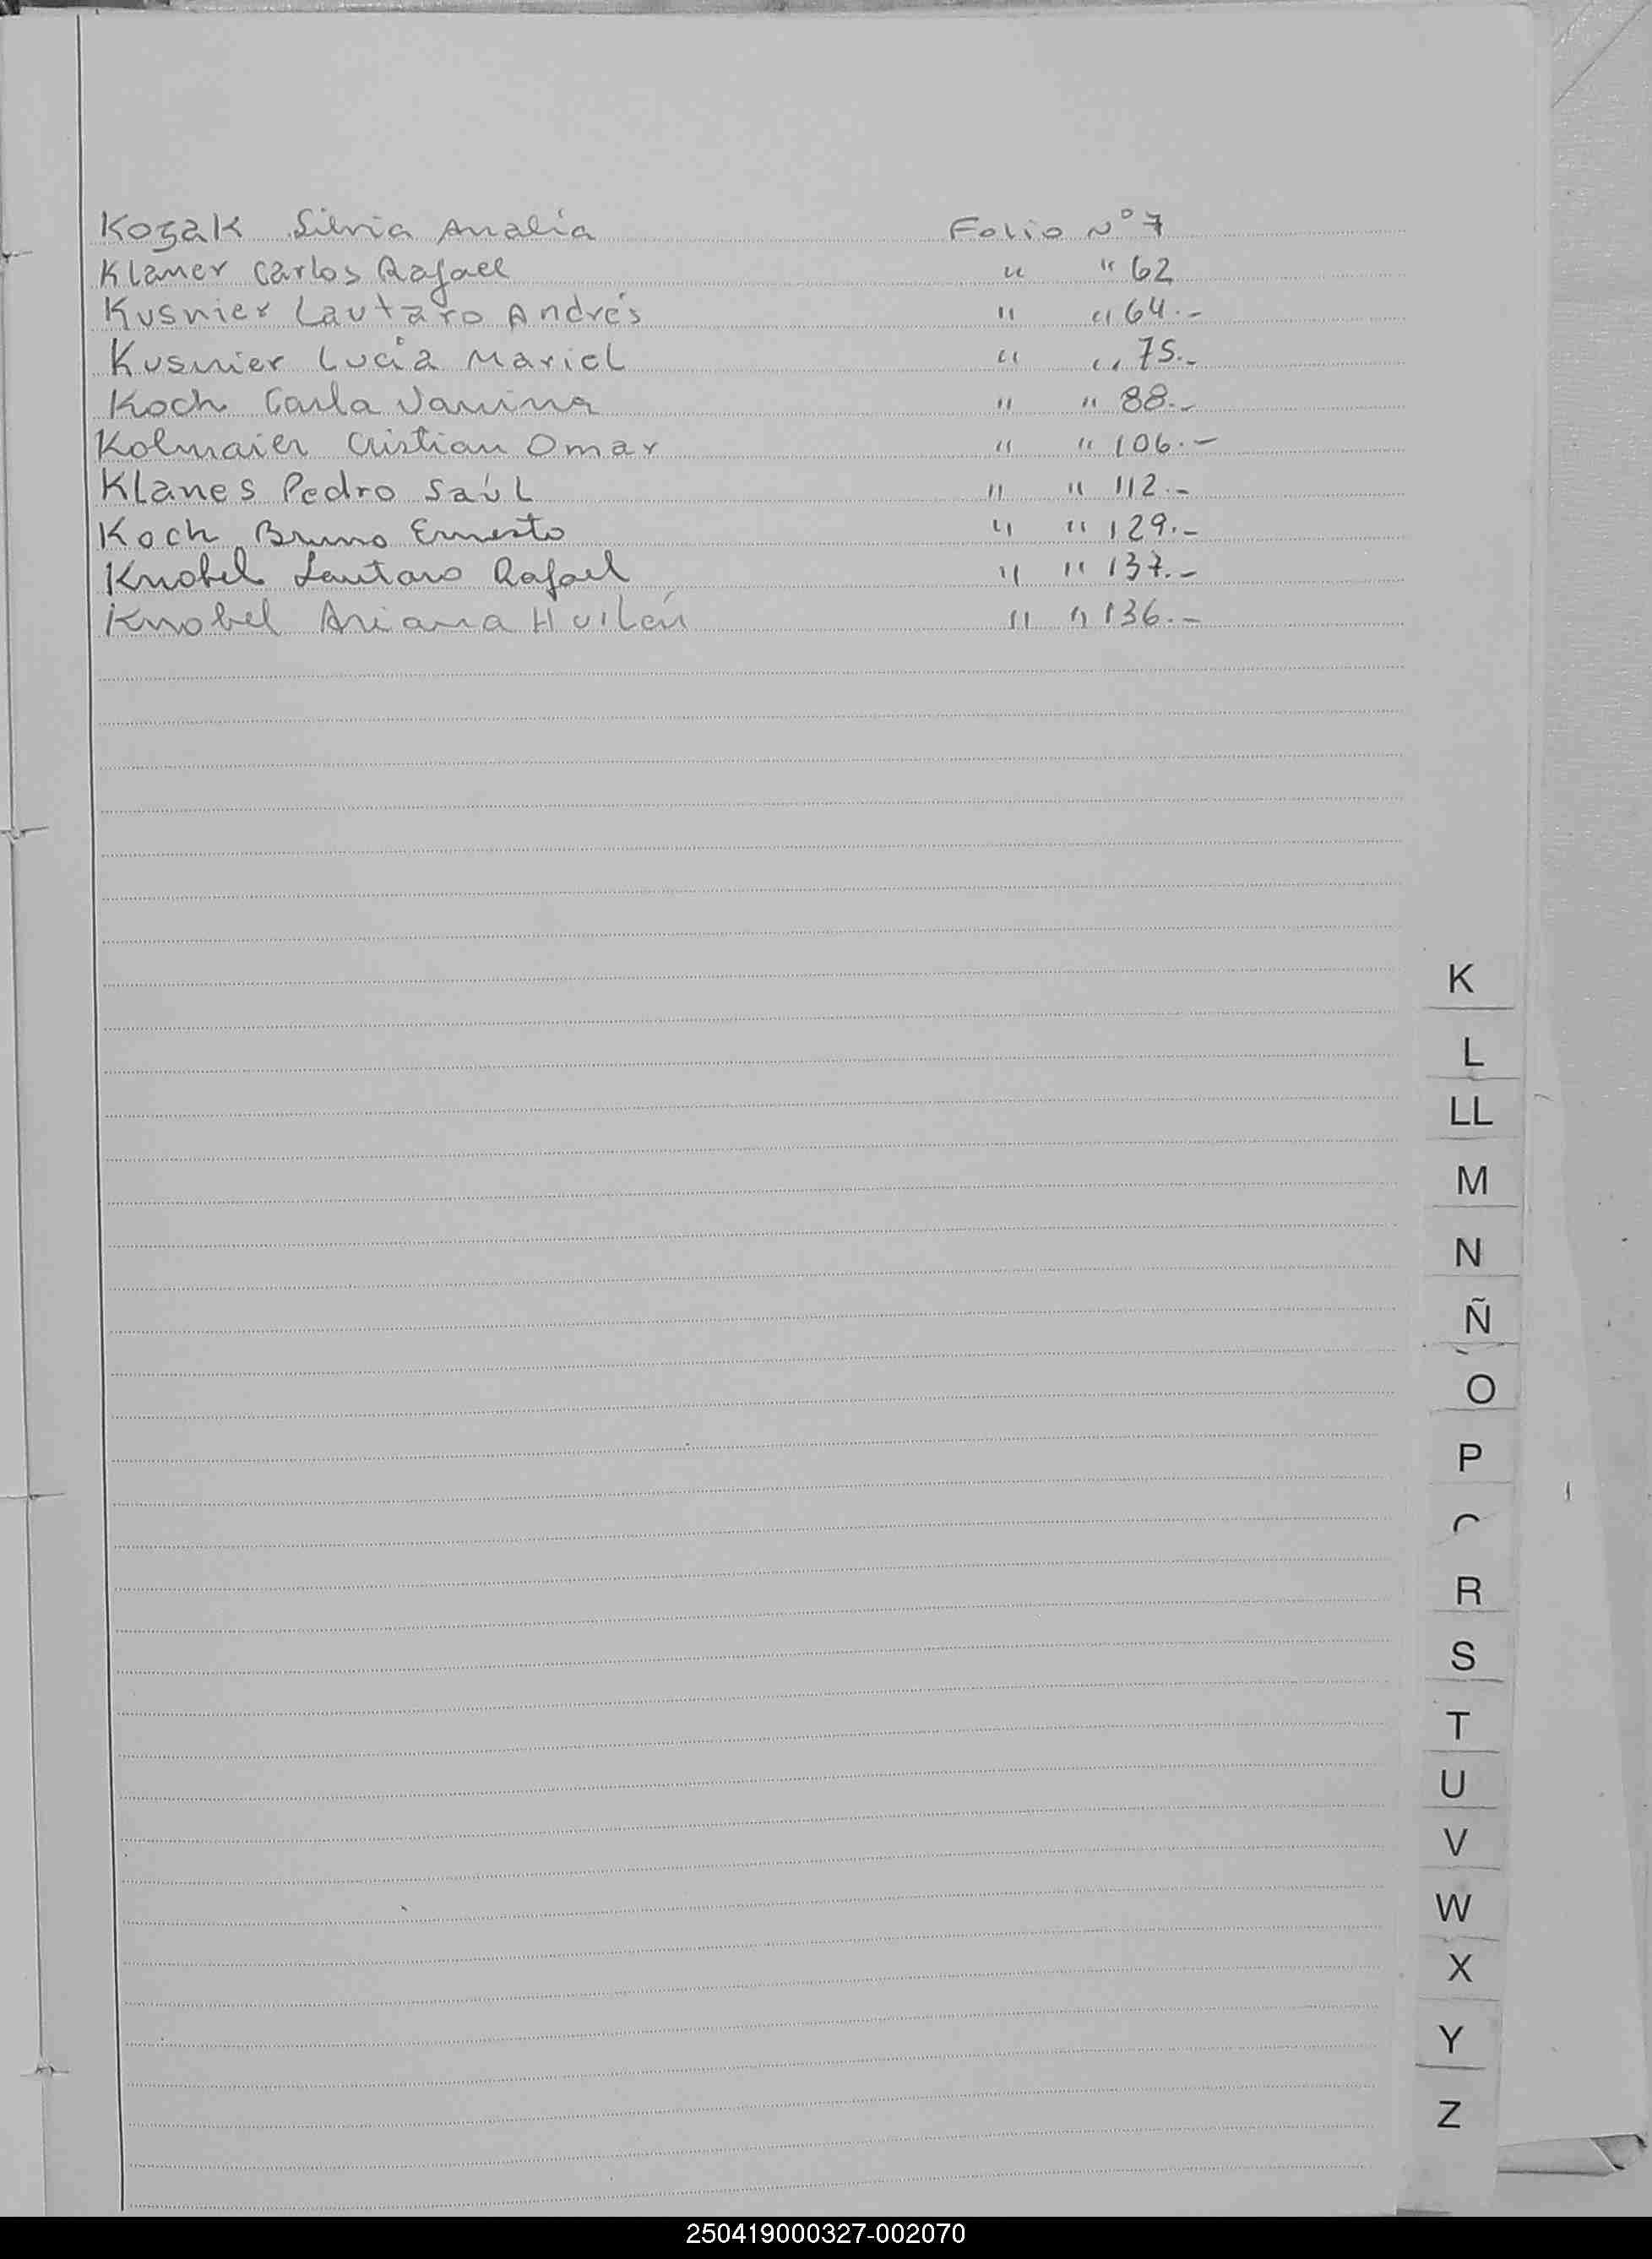 Kozak Silvia Analía Folio N° 7
Klaner Carlos Rafael " " 62
Kusnier Lautaro Andrés " " 64.-
Kusnier Lucía Mariel " " 75.-
Koch Carla Vanina " " 88.-
Kolmaier Cristian Omar " " 106.-
Klanes Pedro Saúl " " 112.-
Koch Bruno Ernesto " " 129.-
Knobel Lautaro Rafael " " 137.-
Knobel Ariana Huilén " " 136.-
K
L
LL
M
N
Ñ
O
P
R
S
T
U
V
W
X
Y
Z
250419000327-002070